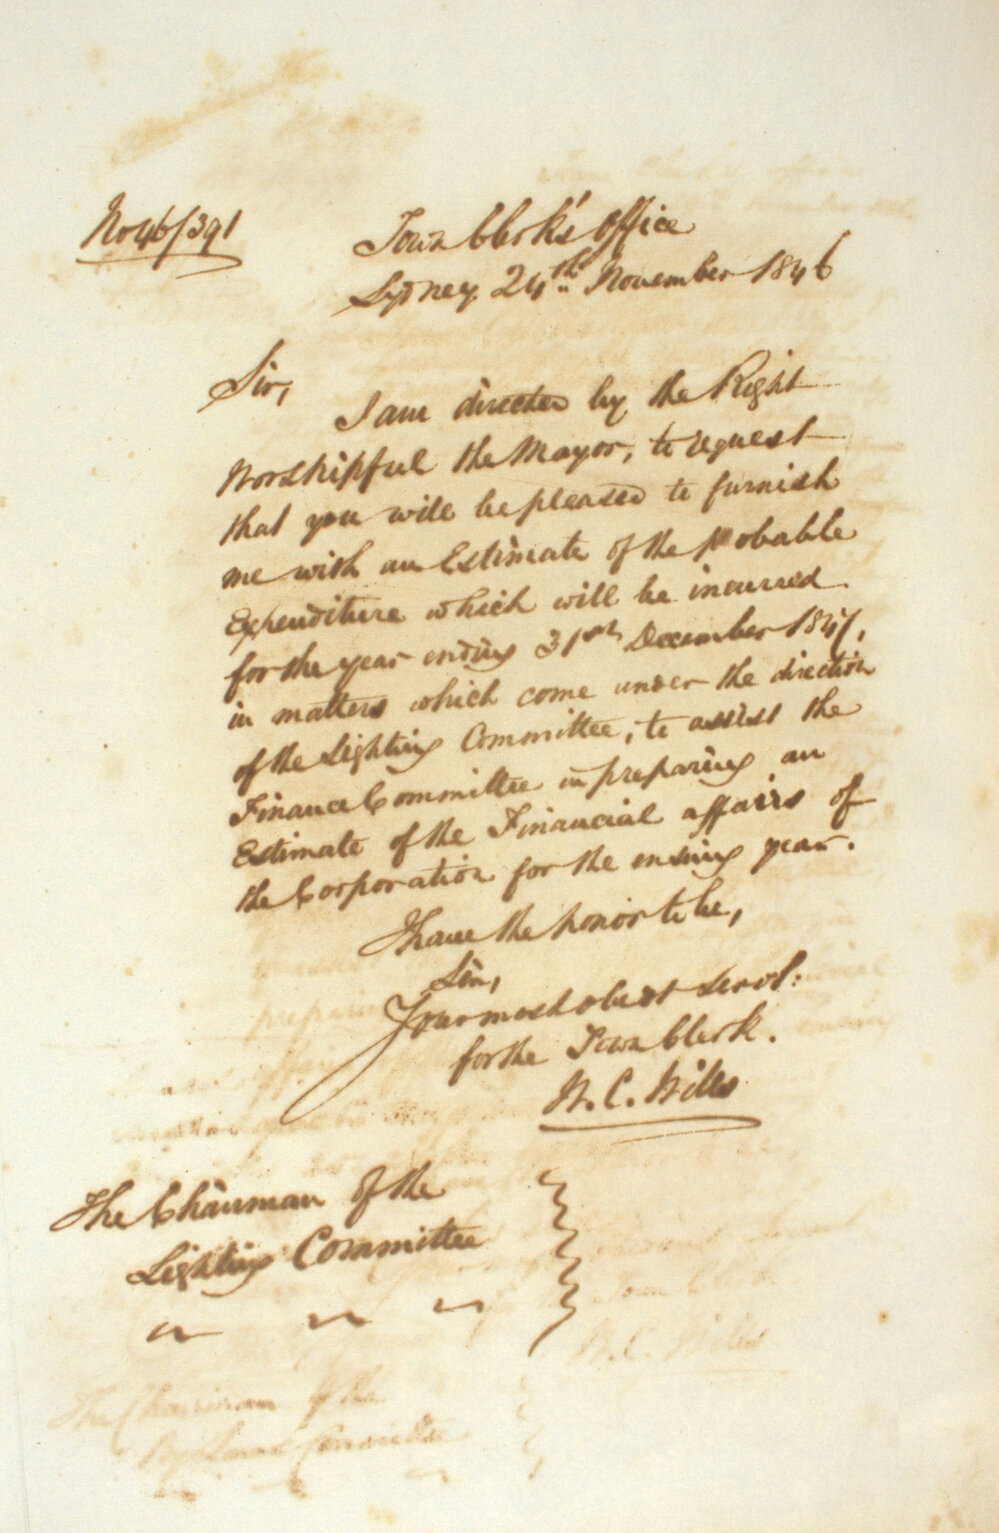 No 46/391
Town Clerk's Office
Sydney 24th November 1846
Sir,
I am directed by the Right
Worshipful the Mayor, to request
that you will be pleased to furnish
me with an Estimate of the probable
Expenditure which will be incurred
for the year ending 31st December 1847,
in matters which come under the direction
of the Lighting Committee, to assist the
Finance Committee in preparing an
Estimate of the Financial affairs of
the Corporation for the ensuing year.
I have the honor to be,
Sir,
Your most obedt servt:
for the Town Clerk.
W. C. Wills
The Chairman of the
Lighting Committee
W. C. Wills
The Chairman of the
Committee